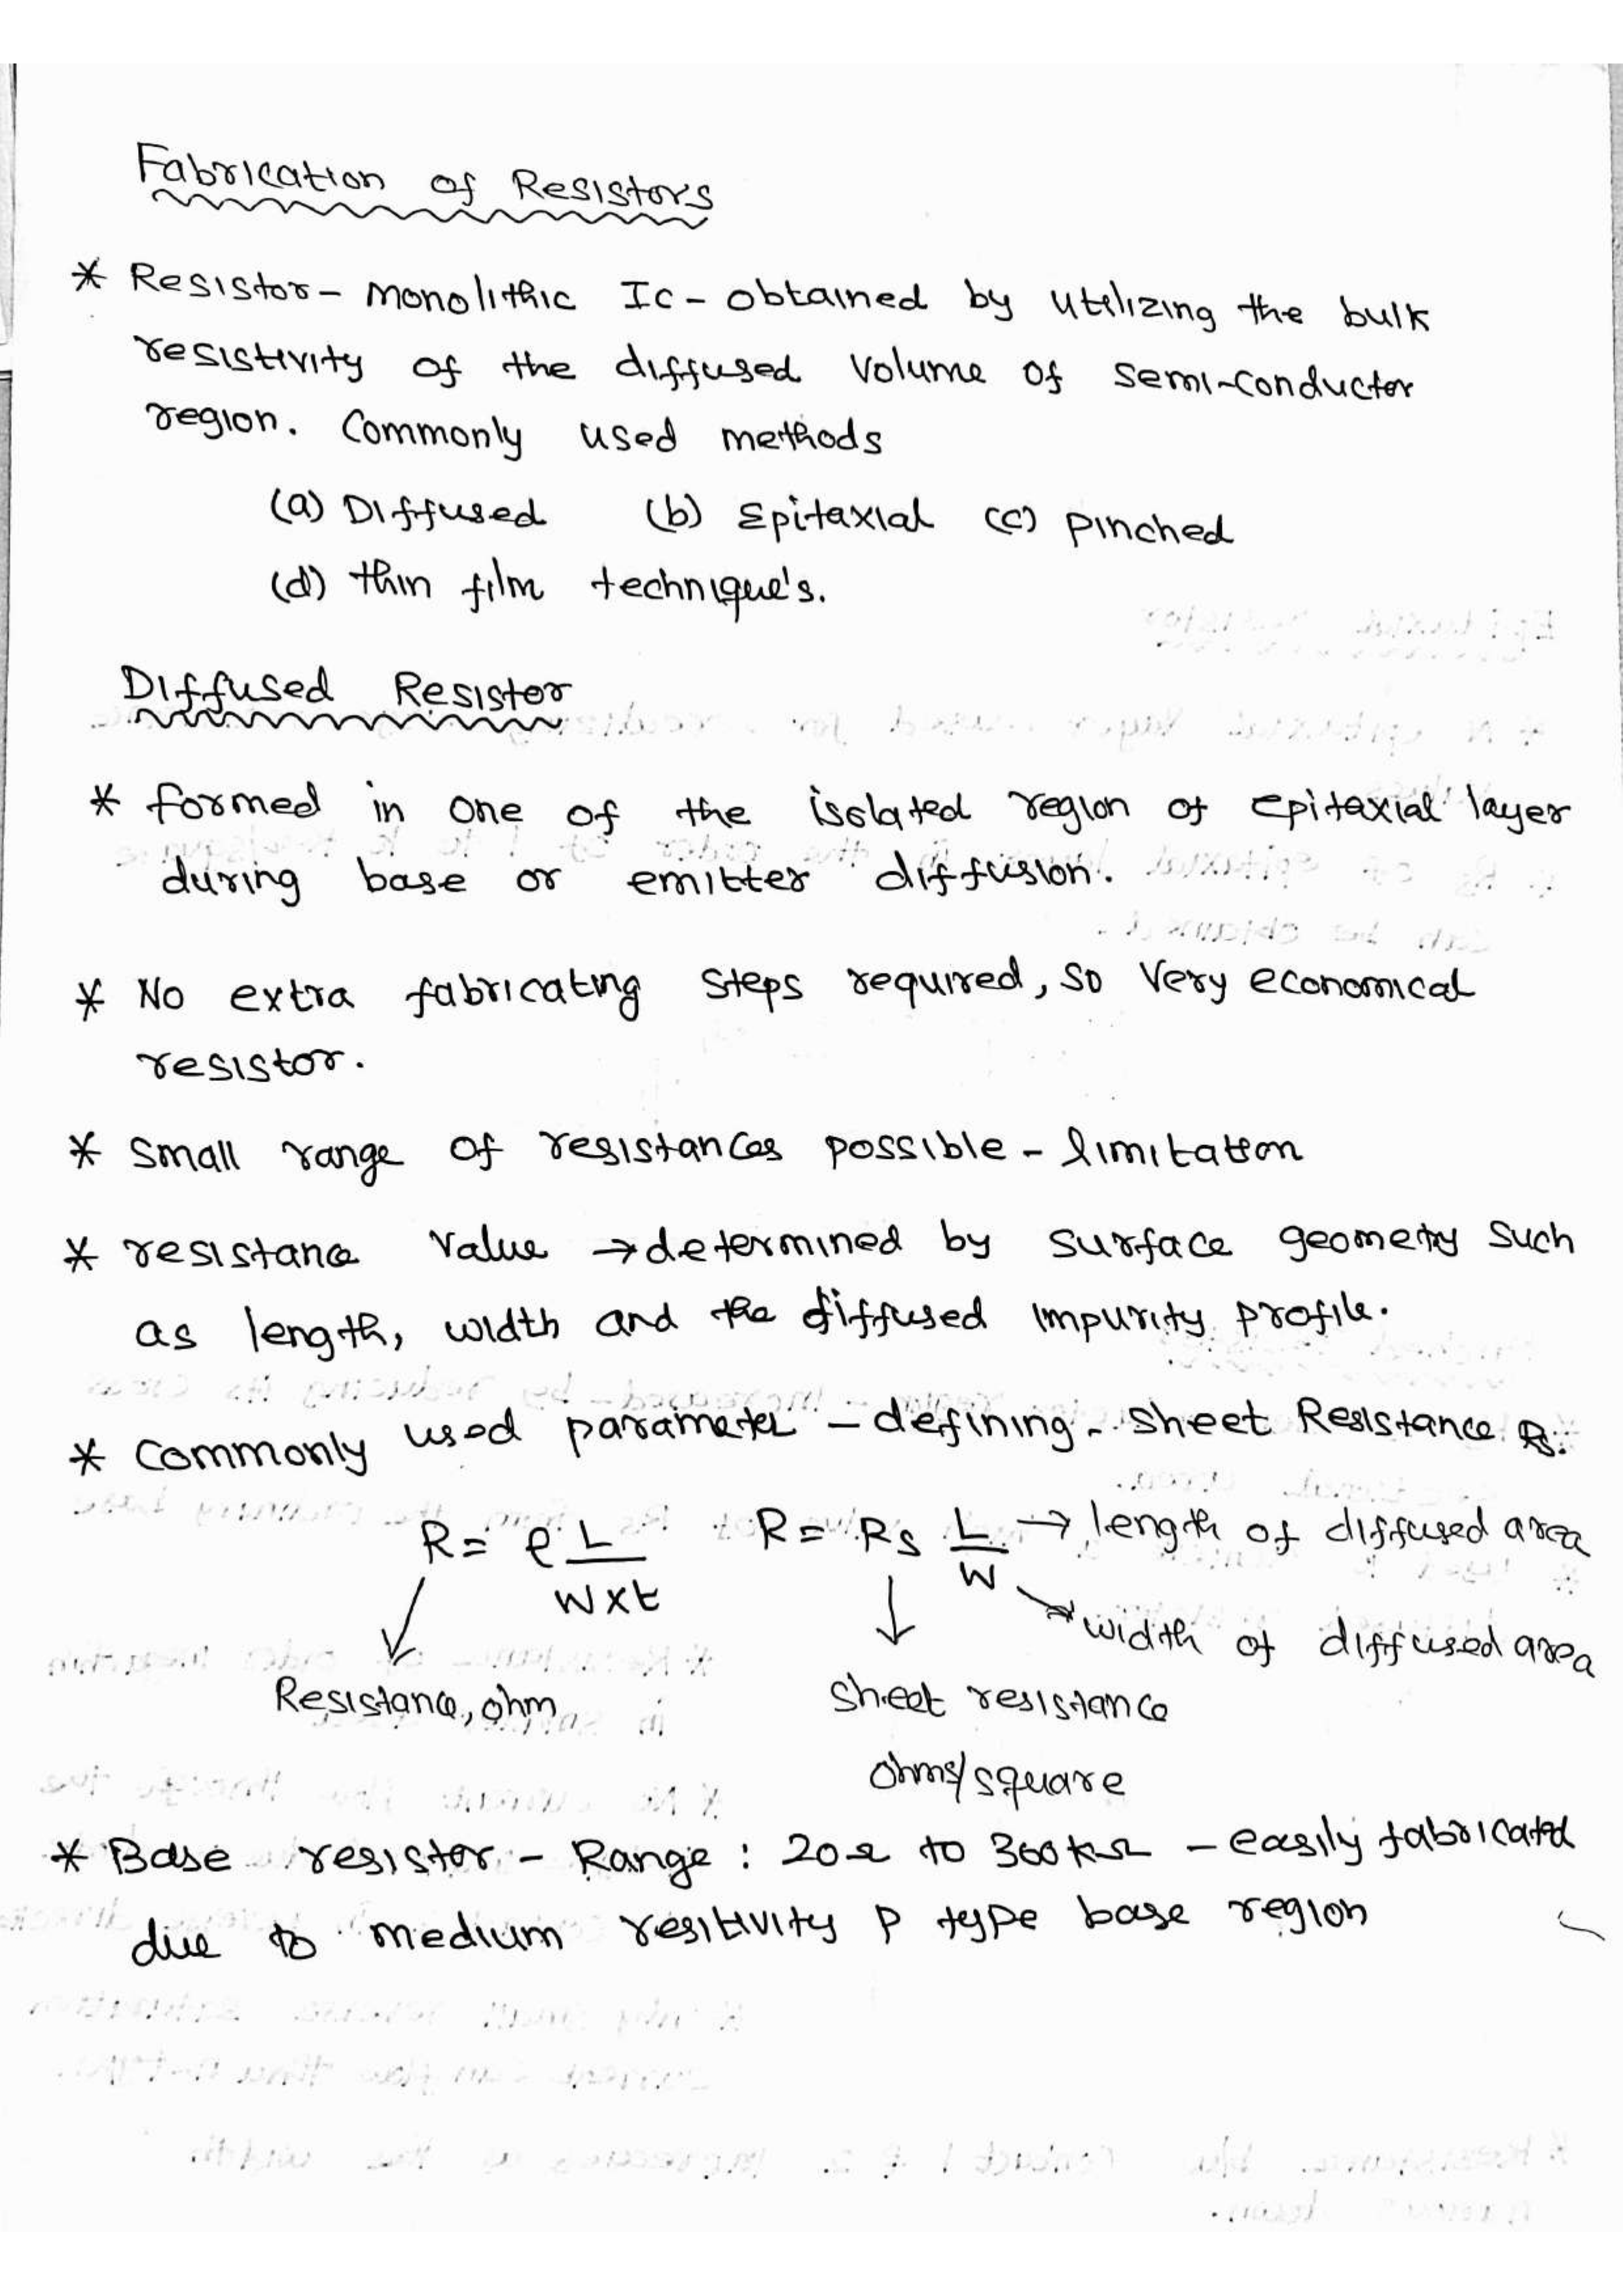 Fabrication of Resistors
* Resistor - Monolithic IC - obtained by utilizing the bulk
resistivity of the diffused volume of semi-conductor
region. Commonly used methods
(a) Diffused (b) Epitaxial (c) pinched
(d) thin film technique's.
Diffused Resistor
* formed in one of the isolated region of epitaxial layer
during base or emitter diffusion.
* No extra fabricating steps required, so very economical
resistor.
* small range of resistances possible - limitation
* resistance value → determined by surface geometry such
as length, width and the diffused impurity profile.
* commonly used parameter - defining - sheet Resistance Rs.
R = ρ L / W×t R = Rs L / W → length of diffused area
width of diffused area
Resistance, ohm sheet resistance
ohms/square
* Base resistor - Range : 20Ω to 300kΩ - easily fabricated
due to medium resitivity p type base region